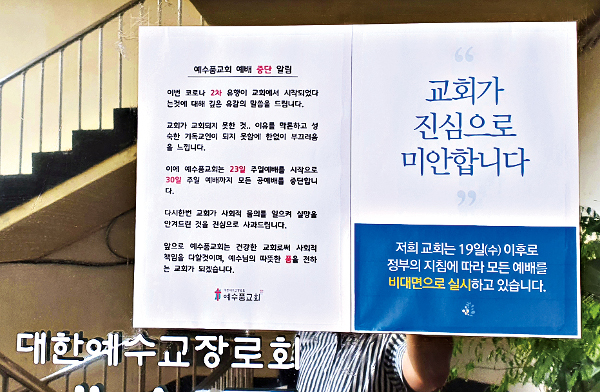 예수품교회 예배 중단 알림
이번 코로나 2차 유행이 교회에서 시작되었다
는것에 대해 깊은 유감의 말씀을 드립니다.
교회가 교회되지 못한 것.. 이유를 막론하고 성
숙한 기독교인이 되지 못함에 한없이 부끄러움
을 느낍니다.
이에 예수품교회는 23일 주일예배를 시작으로
30일 주일 예배까지 모든 공예배를 중단합니
다.
다시한번 교회가 사회적 물의를 일으켜 실망을
안겨드린 것을 진심으로 사과드립니다.
앞으로 예수품교회는 건강한 교회로써 사회적
책임을 다할것이며, 예수님의 따뜻한 품을 전하
는 교회가 되겠습니다.
예수품교회
“
교회가
진심으로
미안합니다
”
저희 교회는 19일(수) 이후로
정부의 지침에 따라 모든 예배를
비대면으로 실시하고 있습니다.
대한예수교장로회